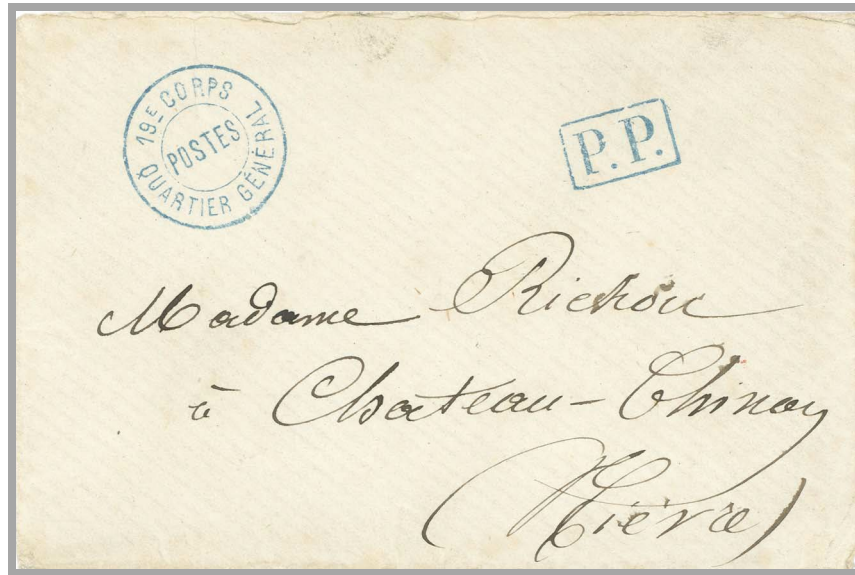 19E CORPS
POSTES
QUARTIER GÉNÉRAL
P.P.
Madame Richou
à Chateau-Chinon
(Nièvre)